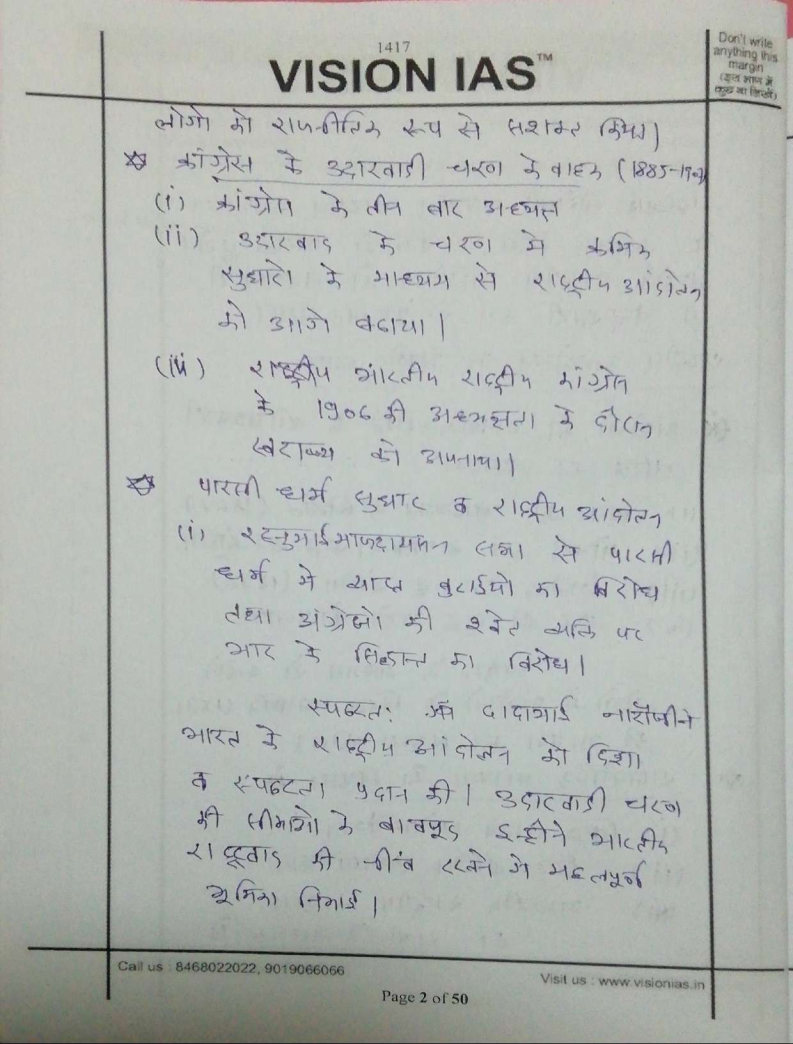 1417
VISION IAS™
Don't write
anything this
margin
(इस भाग में
कुछ ना लिखें)
लोगो को राजनीतिक रूप से सशक्त किया।
कांग्रेस के उदारवादी चरण के वाहक (1885-190
(i) कांग्रेस के तीन बार अध्यक्ष
(ii) उदारवाद के चरण मे क्रमिक
सुधारो के माध्यम से राष्ट्रीय आंदोलन
को आगे बढाया।
(iii) राष्ट्रीय भारतीय राष्ट्रीय कांग्रेस
के 1906 की अध्यक्षता के दौरान
स्वराज्य को अपनाया।
पारसी धर्म सुधार व राष्ट्रीय आंदोलन
(i) सभा से पारसी
धर्म मे व्याप्त बुराईयो का विरोध
तथा अंग्रेजो की श्वेत व्यक्ति पर
भार के सिद्धान्त का विरोध।
स्पष्टत: दादाभाई नारौजी ने
भारत के राष्ट्रीय आंदोलन को दिशा
व स्पष्टता प्रदान की। उदारवादी चरण
की सीमाओ के बावजूद इन्होने भारतीय
राष्ट्रवाद की नींव रखने मे महत्वपूर्ण
भूमिका निभाई।
Call us : 8468022022, 9019066066
Visit us : www.visionias.in
Page 2 of 50